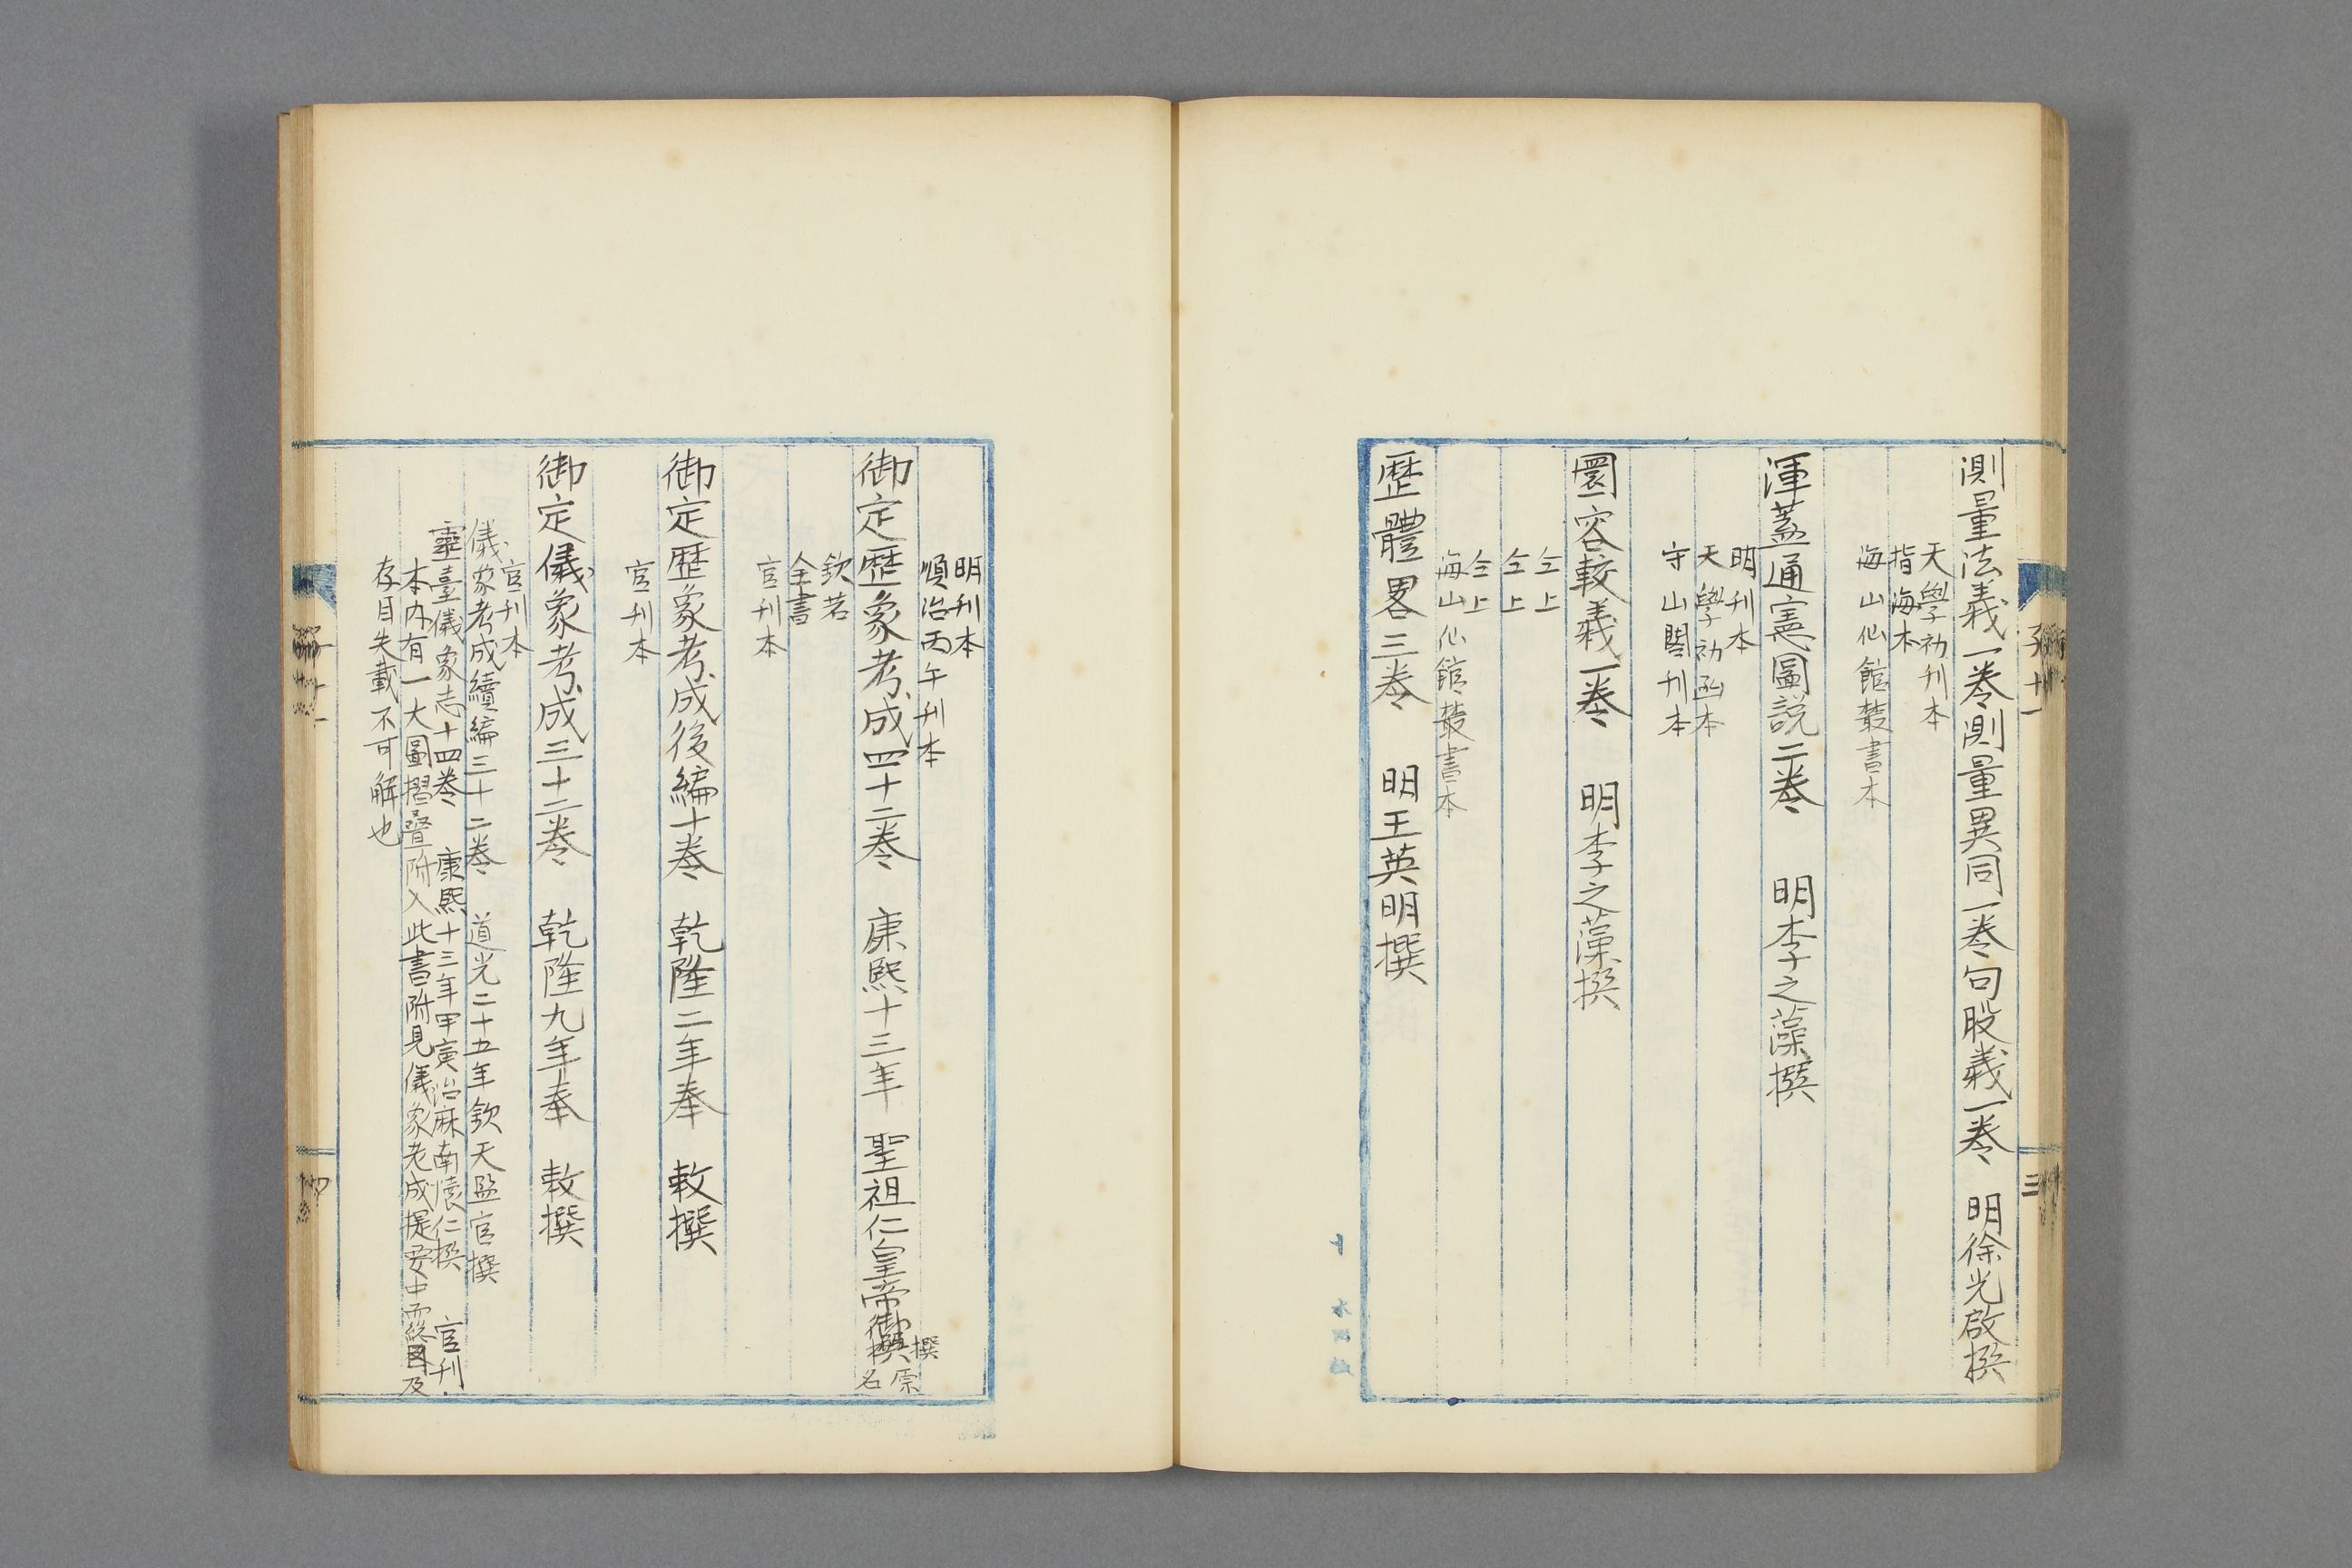 子十一
三
測量法義一卷測量異同一卷句股義一卷 明徐光啟撰
天學初刊本
指海本
海山仙館叢書本
渾蓋通憲圖說二卷 明李之藻撰
明刊本
天學初函本
守山閣刊本
圜容較義一卷 明李之藻撰
仝上
仝上
仝上
海山仙館叢書本
歷體畧三卷 明王英明撰
明刊本
順治丙午刊本
御定歷象考成四十二卷 康熙十三年 聖祖仁皇帝御撰
撰
原名
欽若
全書
官刊本
御定歷象考成後編十卷 乾隆二年奉 敕撰
官刊本
御定儀象考成三十二卷 乾隆九年奉 敕撰
官刊本
儀象考成續編三十二卷 道光二十五年欽天監官撰
靈臺儀象志十四卷 康熙十三年甲寅治麻南懷仁撰 官刊
本內有一大圖摺疊附入此書附見儀象考成提要中而終及
存目失載不可解也
子十一
四